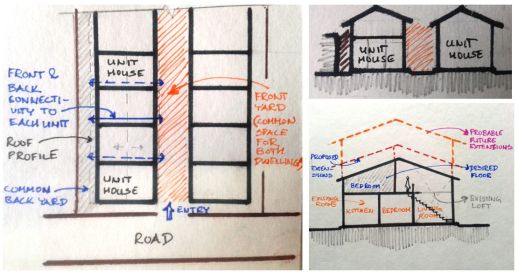 UNIT
HOUSE
FRONT &
BACK
CONNECTI-
VITY TO
EACH UNIT
ROOF
PROFILE
COMMON
BACK YARD
UNIT
HOUSE
FRONT
YARD
(COMMON
SPACE
FOR
BOTH
DWELLING)
ENTRY
ROAD
UNIT
HOUSE
UNIT
HOUSE
PROBABLE
FUTURE
EXTENSIONS
PROPOSED
EXTEN-
SIONS
BEDROOM
DESIRED
FLOOR
EXISTING
ROOMS
KITCHEN
BEDROOM
LIVING
ROOM
EXISTING
LOFT